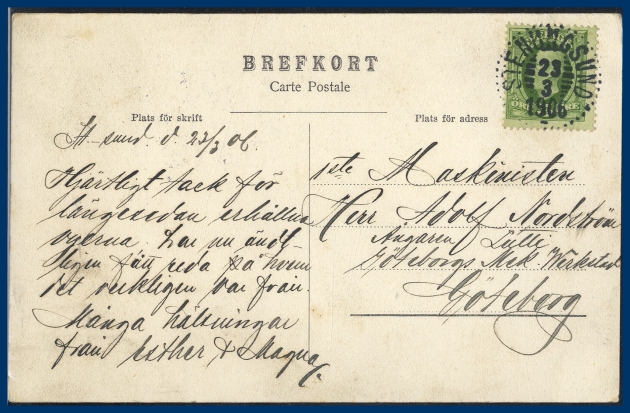 BREFKORT
Carte Postale
Plats för skrift
Plats för adress
STENUNGSUND
23
3
1906
St-sund d. 23/3 06.
Hjärtligt tack för
längesedan erhållna
vyerna, har nu änd-
tligen fått reda på hvem
det verkligen var från.
Många hälsningar
från Esther & Magna
1ste Maskinisten
Herr Adolf Nordström
Ångaren Lütte
Göteborgs Mek Verkstad
Göteborg